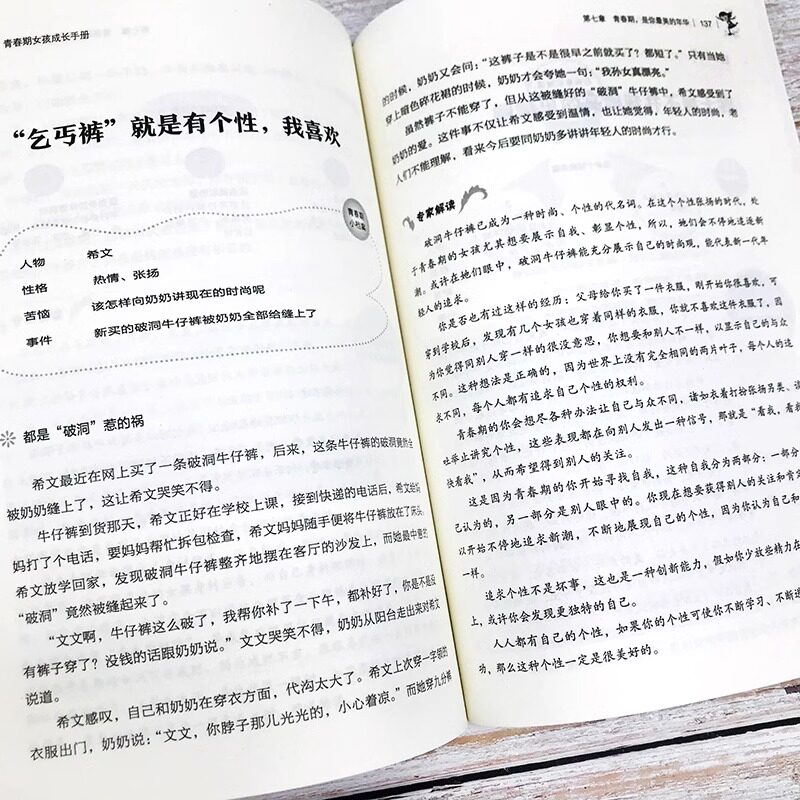 青春期女孩成长手册
“乞丐裤”就是有个性，我喜欢
青春期
小档案
人物 希文
性格 热情、张扬
苦恼 该怎样向奶奶讲现在的时尚呢
事件 新买的破洞牛仔裤被奶奶全部给缝上了
都是“破洞”惹的祸
希文最近在网上买了一条破洞牛仔裤，后来，这条牛仔裤的破洞竟然全
被奶奶缝上了，这让希文哭笑不得。
牛仔裤到货那天，希文正好在学校上课，接到快递的电话后，希文给妈
妈打了个电话，要妈妈帮忙拆包检查，希文妈妈随手便将牛仔裤放在了床头。
希文放学回家，发现破洞牛仔裤整齐地摆在客厅的沙发上，而她最中意的
“破洞”竟然被缝起来了。
“文文啊，牛仔裤这么破了，我帮你补了一下午，都补好了，你是不是没
有裤子穿了？没钱的话跟奶奶说。”文文哭笑不得，奶奶从阳台走出来对希文
说道。
希文感叹，自己和奶奶在穿衣方面，代沟太大了。希文上次穿一字领的
衣服出门，奶奶说：“文文，你脖子那儿光光的，小心着凉。”而她穿九分裤
第七章 青春期，是你最美的年华 137
的时候，奶奶又会问：“这裤子是不是很早之前就买了？都短了。”只有当她
穿上暗色碎花裙的时候，奶奶才会夸她一句：“我孙女真漂亮。”
虽然裤子不能穿了，但从这被缝好的“破洞”牛仔裤中，希文感受到了
奶奶的爱。这件事不仅让希文感受到温情，也让她觉得，年轻人的时尚，老
人们不能理解，看来今后要同奶奶多讲讲年轻人的时尚才行。
专家解读
破洞牛仔裤已成为一种时尚、个性的代名词。在这个个性张扬的时代，处
于青春期的女孩尤其想要展示自我、彰显个性，所以，她们会不停地追逐新
潮。或许在她们眼中，破洞牛仔裤能充分展示自己的时尚观，能代表新一代年
轻人的追求。
你是否也有过这样的经历：父母给你买了一件衣服，刚开始你很喜欢，可
穿到学校后，发现有几个女孩也穿着同样的衣服，你就不喜欢这件衣服了，因
为你觉得同别人穿一样的很没意思，你想要和别人不一样，以显示自己的与众
不同。这种想法是正确的，因为世界上没有完全相同的两片叶子，每个人的追
求不同，每个人都有追求自己个性的权利。
青春期的你会想尽各种办法让自己与众不同，诸如衣着打扮张扬另类、谈
吐举止讲究个性，这些表现都在向别人发出一种信号，那就是“看我，看我
快看我”，从而希望得到别人的关注。
这是因为青春期的你开始寻找自我，这种自我分为两部分：一部分
己认为的，另一部分是别人眼中的。你现在想要获得别人的关注和肯
以开始不停地追求新潮，不断地展现自己的个性，因为你认为自己和
一样。
追求个性不是坏事，这也是一种创新能力，假如你少放些精力在
上，或许你会发现更独特的自己。
人人都有自己的个性，如果你的个性可使你不断学习、不断进
功，那么这种个性一定是很美好的。